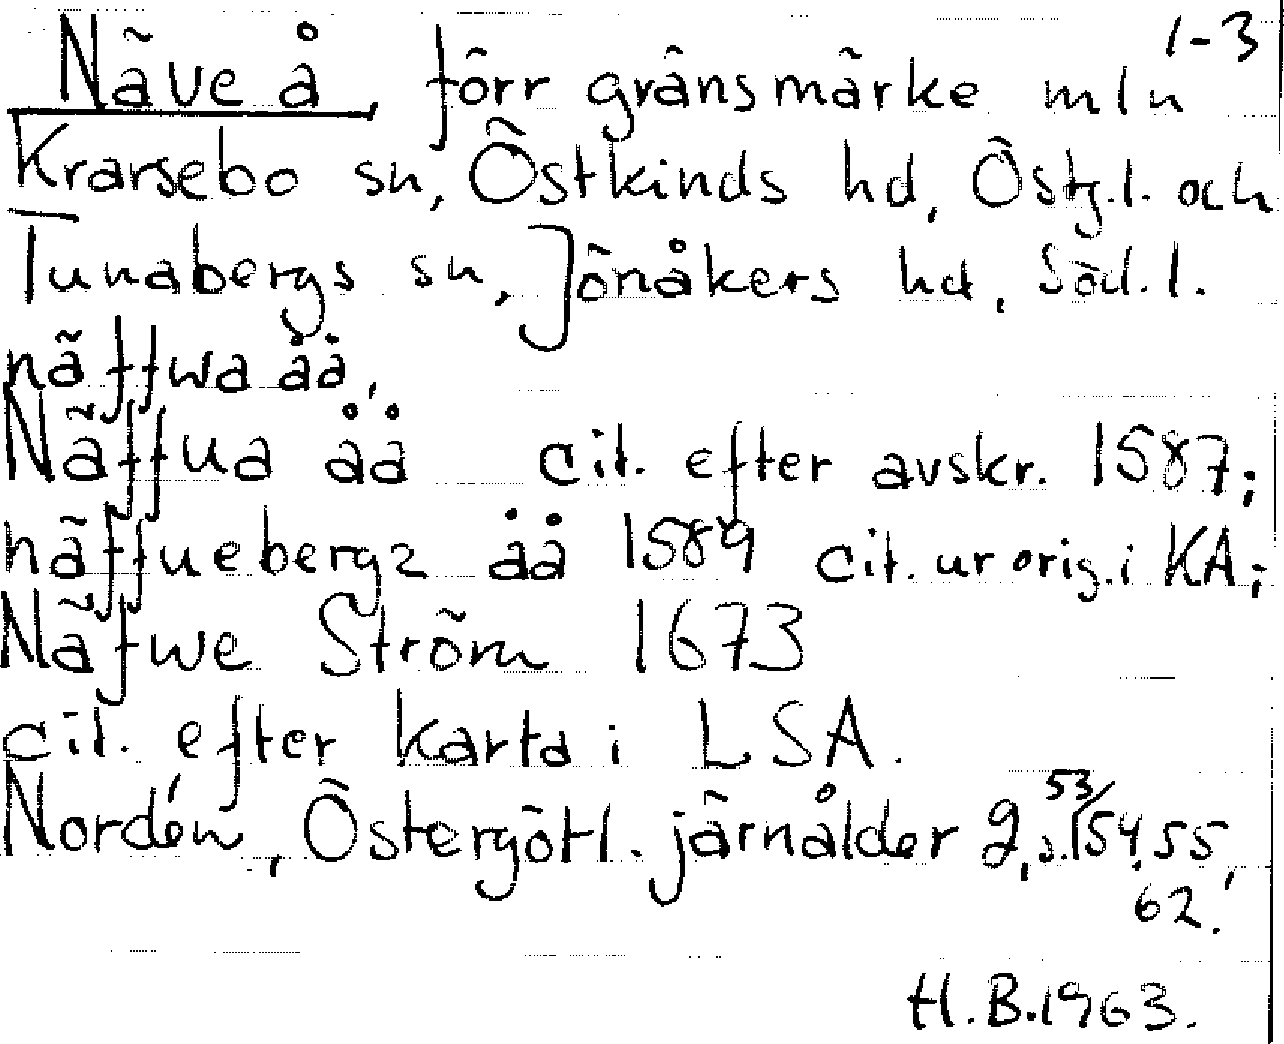 1-3
Näve å, förr gränsmärke mln
Krarsebo sn, Östkinds hd, Östg.l. och
Tunabergs sn, Jönåkers hd, Söd.l.
näffwa åå,
Näffua åå cit. efter avskr. 1587;
näffuebergz åå 1589 cit. ur orig. i KA;
Näfwe Ström 1673
cit. efter karta i LSA.
Nordén, Östergötl. järnålder 2, s. 53/154, 55,
62.
H.B. 1963.